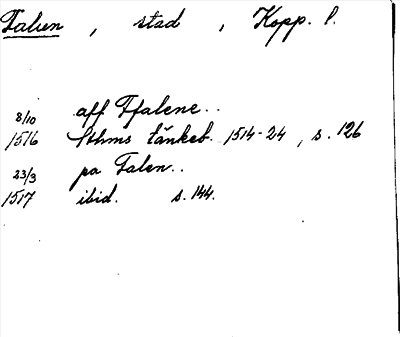 Falun , stad , Kopp. l.
8/10 aff Ffalene..
1516 Sthms tänkeb. 1514-24, s. 126
23/3 pa Falen..
1517 ibid. s. 144.